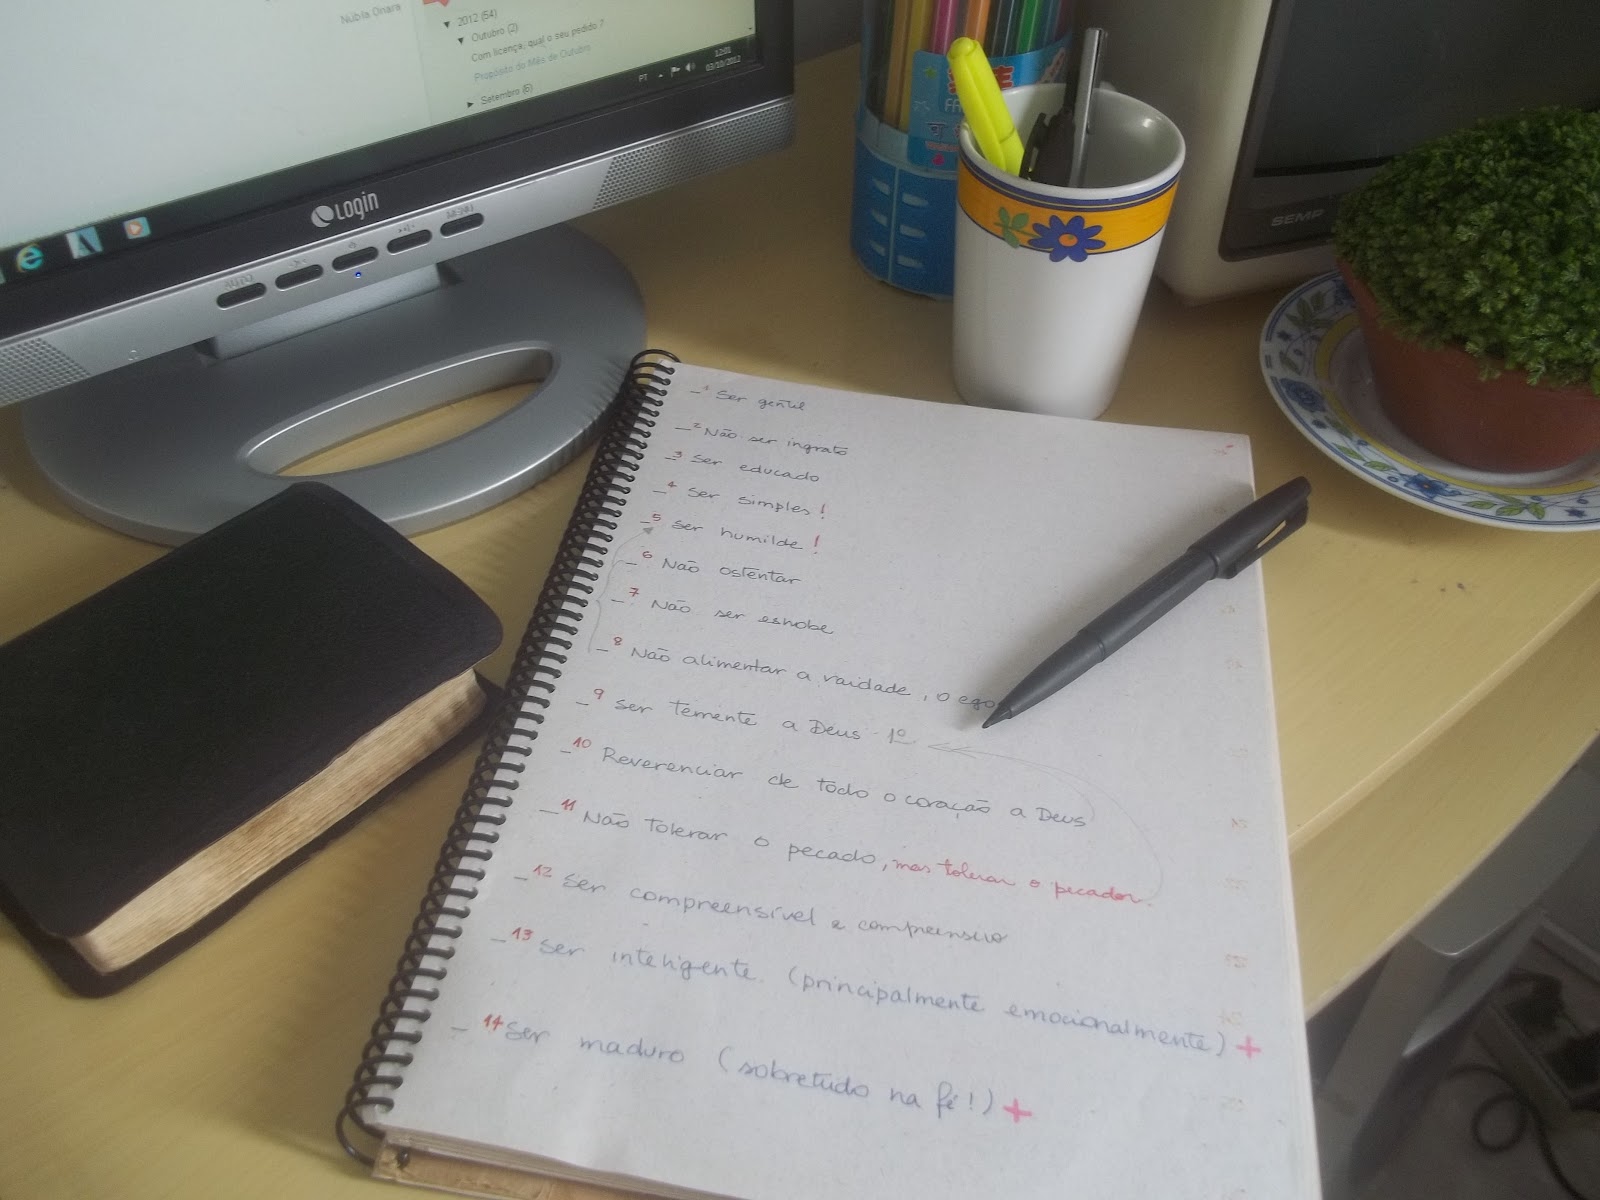 Núbila Onara
▼ 2012 (54)
▼ Outubro (2)
Com licença, qual o seu pedido ?
Propósito do Mês de Outubro
► Setembro (6)
PT
12:01
03/10/2012
Login
AUTO
MENU
SEMP
1 Ser gentil
2 Não ser ingrato
3 Ser educado
4 Ser simples!
5 Ser humilde!
6 Não ostentar
7 Não ser esnobe
8 Não alimentar a vaidade, o ego
9 Ser temente a Deus 1º
10 Reverenciar de todo o coração a Deus
11 Não tolerar o pecado, mas tolerar o pecador.
12 Ser compreensível e compreensivo
13 Ser inteligente (principalmente emocionalmente) +
14 Ser maduro (sobretudo na fé!) +